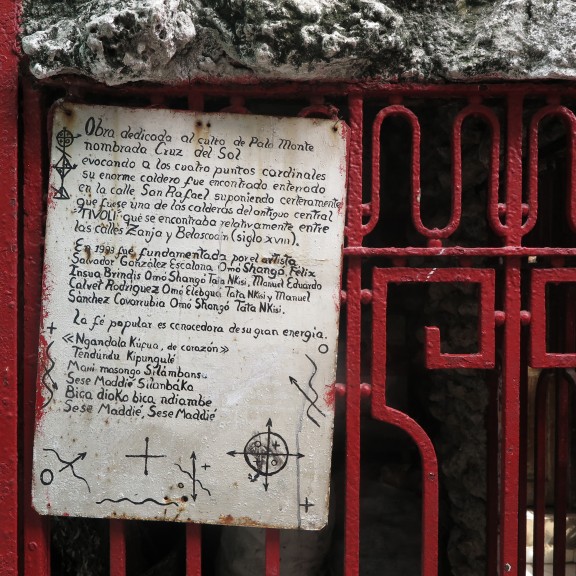 Obra dedicada al culto de Palo Monte
nombrada Cruz del Sol
evocando a los cuatro puntos cardinales
su enorme caldero fue encontrado enterrado
en la calle San Rafael suponiendo certeramente
que fuese una de las calderas del antiguo central
"TIVOLI" que se encontraba relativamente entre
las calles Zanja y Belascoain (siglo XVIII).
En 1993 fué fundamentada por el artista
Salvador González Escalona Omó Shangó, Félix
Insua Brindis Omó Shangó Tata NKisi, Manuel Eduardo
Calvet Rodriguez Omó Elebgua Tata NKisi y Manuel
Sánchez Covarrubia Omó Shangó Tata NKisi.
La fé popular es conocedora de su gran energia.
«Ngandala Kufua, de corazón»
Tendundu Kipungulé
Mani masongo Silámbansu
Sese Maddié Silambáka
Bica dioko bica ndiambe
Sese Maddié, Sese Maddié